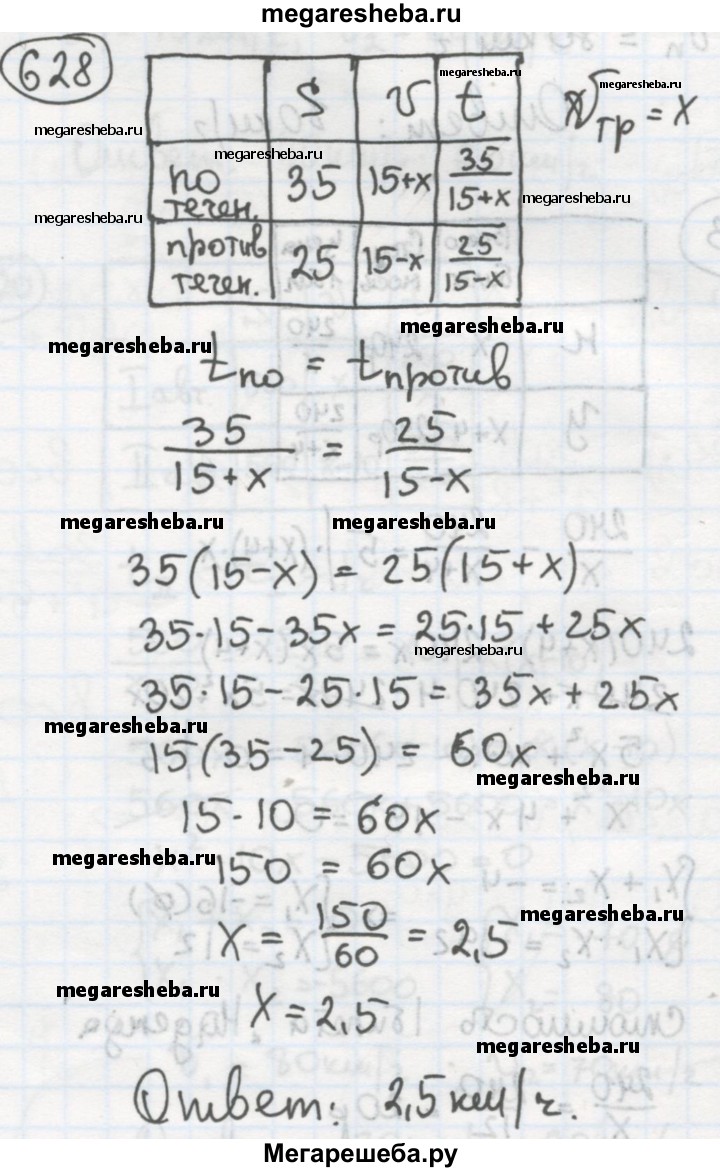 megaresheba.ru
628
S V t
megaresheba.ru
megaresheba.ru
Vтр = x
megaresheba.ru
megaresheba.ru
по течен. 35 15+x 35/(15+x)
megaresheba.ru
megaresheba.ru
против течен. 25 15-x 25/(15-x)
megaresheba.ru
megaresheba.ru
tпо = tпротив
35/(15+x) = 25/(15-x)
megaresheba.ru megaresheba.ru
35(15-x) = 25(15+x)
35·15-35x = 25·15 + 25x
megaresheba.ru
35·15-25·15 = 35x + 25x
megaresheba.ru
15(35-25) = 60x
megaresheba.ru
15·10 = 60x
megaresheba.ru
150 = 60x
megaresheba.ru
x = 150/60 = 2,5
megaresheba.ru
x = 2,5
megaresheba.ru
Ответ: 2,5 км/ч.
Мегарешеба.ру